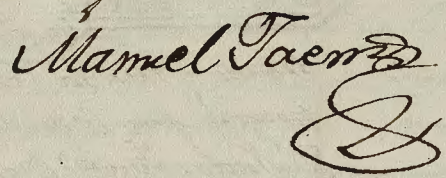 Manuel Taenz